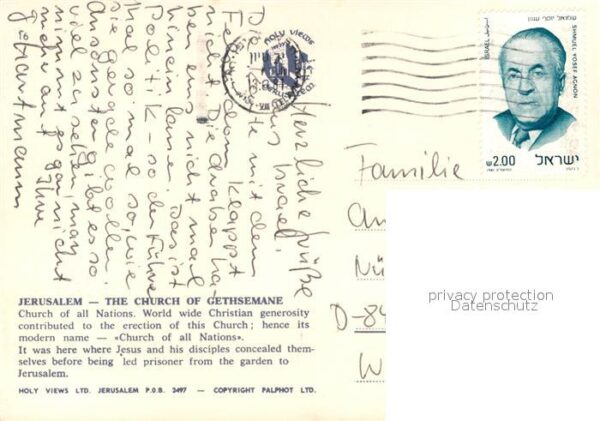 Herzliche Grüße
aus Israel.
Die mit dem
Frieden klappt
nicht. Die Araber ha-
ben uns nicht mal
hinein lassen. Das ist
Politik – so der Führer
mal so, mal so, wie
sie gerade wollen.
Ansonsten gibt es so
viel zu sehen, man
nimmt es gar nicht
mehr auf. Ihre
Hartmann
HOLY VIEWS
JERUSALEM
ISRAEL
שמואל יוסף עגנון
SHMUEL YOSEF AGNON
2.00
ישראל
Familie
An
Nü
D-84
W
privacy protection
Datenschutz
JERUSALEM — THE CHURCH OF GETHSEMANE
Church of all Nations. World wide Christian generosity
contributed to the erection of this Church; hence its
modern name — «Church of all Nations».
It was here where Jesus and his disciples concealed them-
selves before being led prisoner from the garden to
Jerusalem.
HOLY VIEWS LTD. JERUSALEM P.O.B. 3497 — COPYRIGHT PALPHOT LTD.